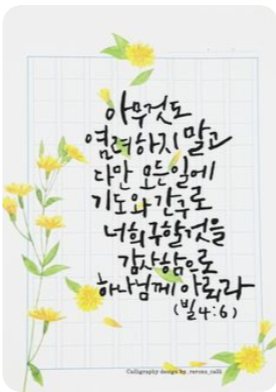 아무것도
염려하지 말고
다만 모든 일에
기도와 간구로
너희 구할 것을
감사함으로
하나님께 아뢰라
(빌4:6)
Calligraphy design by. reroza_calli